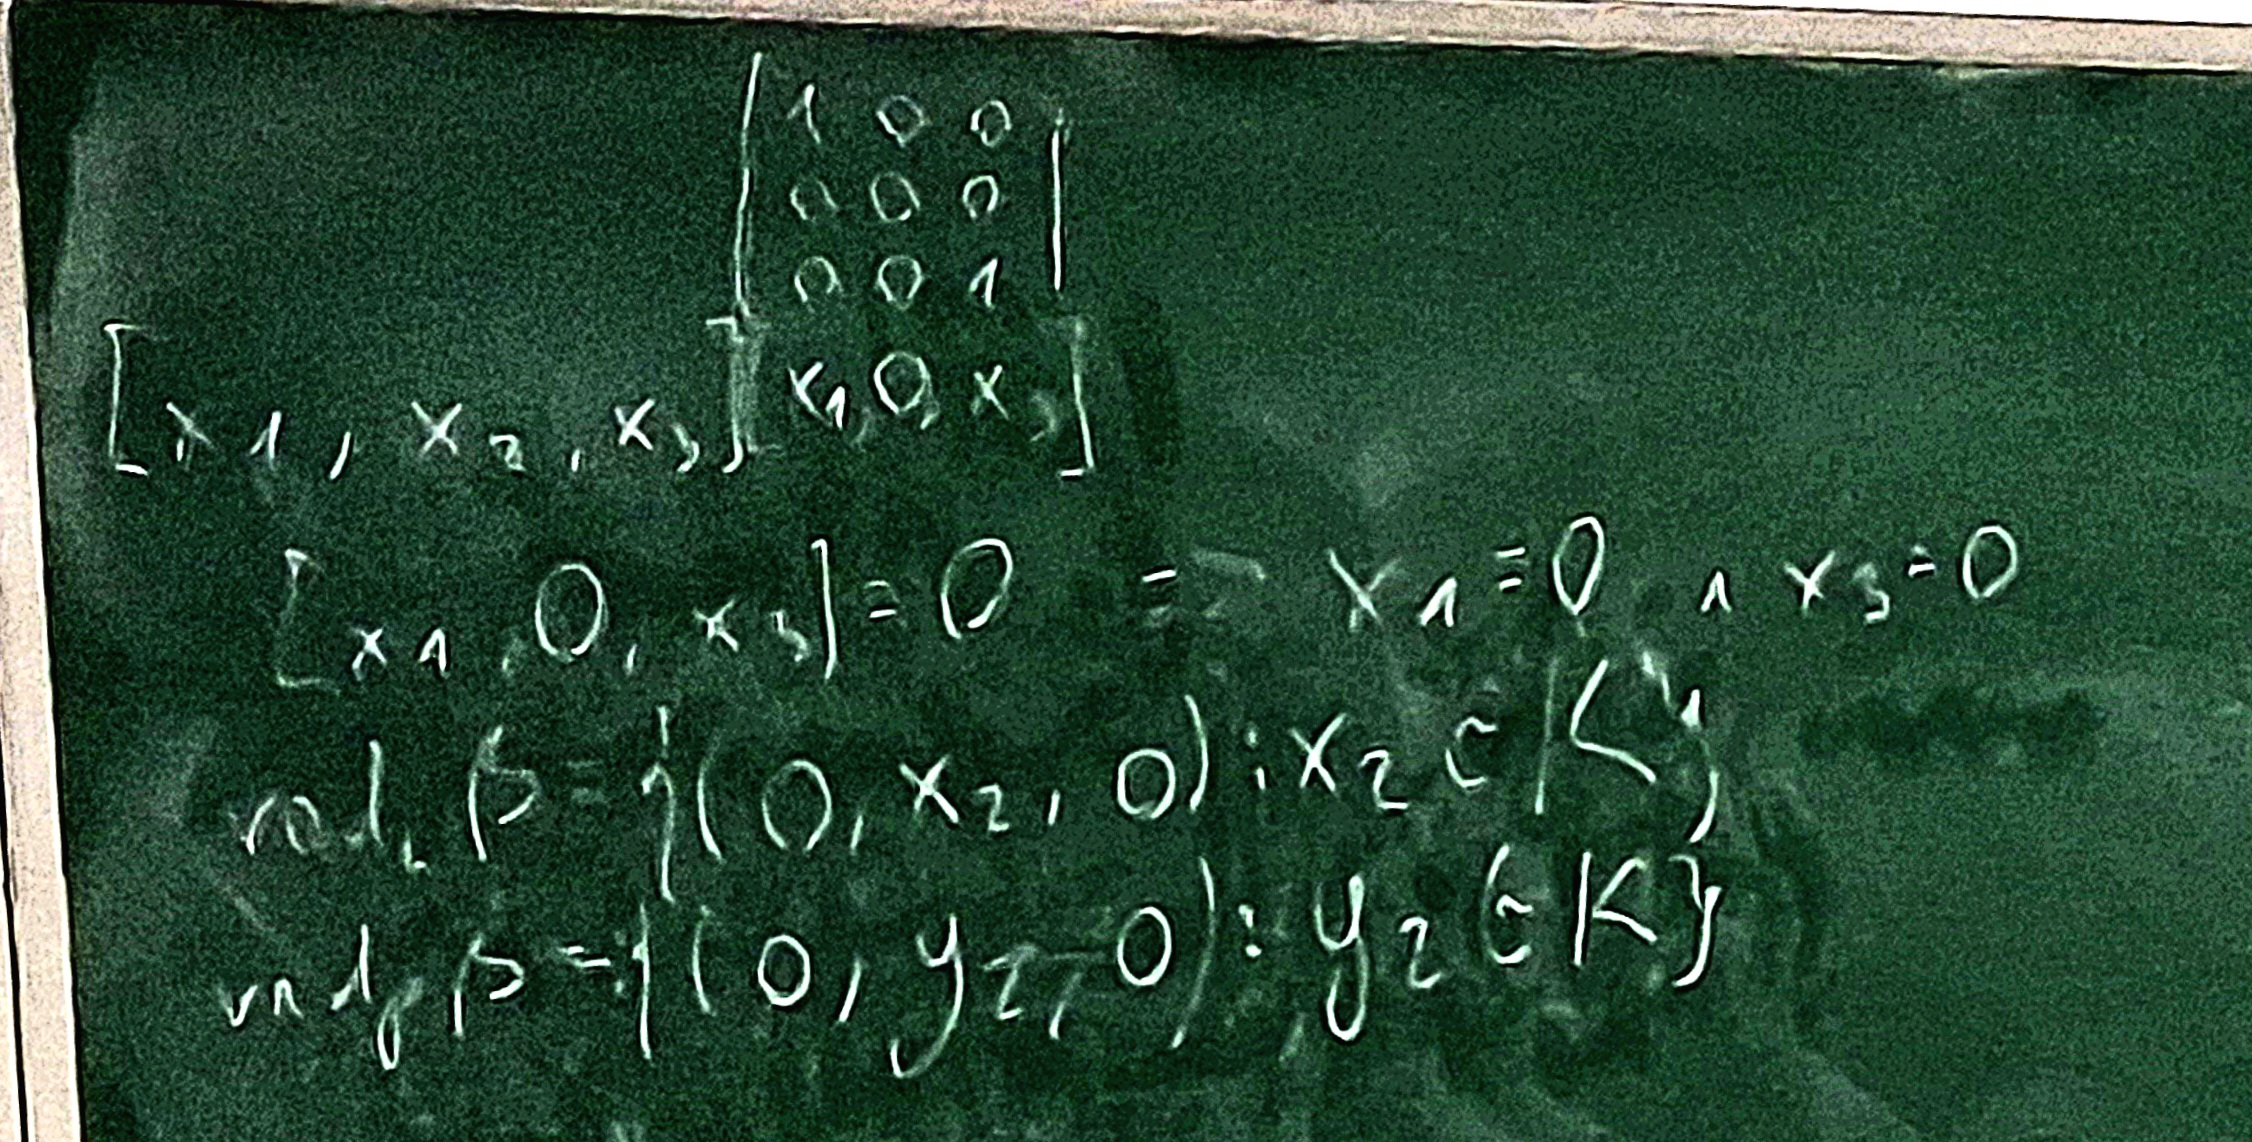 1 0 0
0 0 0
0 0 1
[x1, x2, x3] [x1, 0, x3]
[x1, 0, x3] = 0 => x1 = 0 ∧ x3 = 0
rad_L β = {(0, x2, 0) : x2 ∈ K}
rad_p β = {(0, y2, 0) : y2 ∈ K}